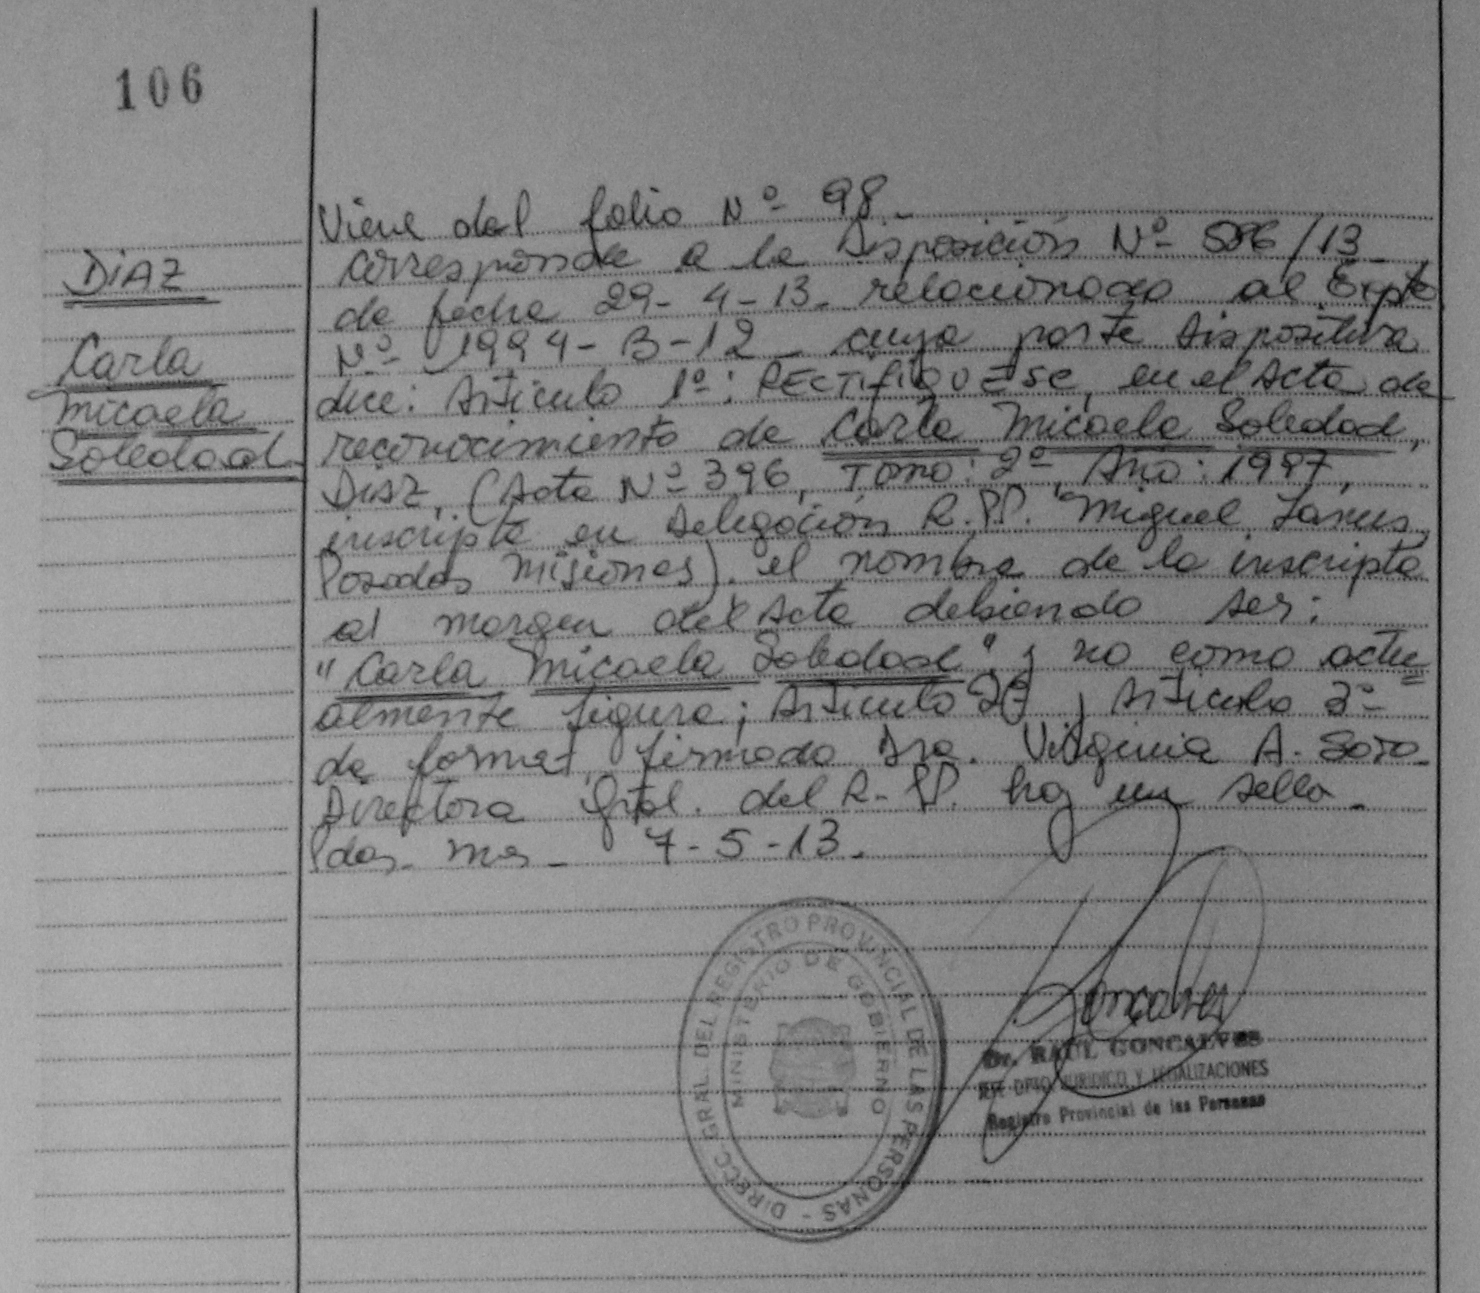 106
DIAZ
Carla
Micaela
Soledad
Viene del folio Nº 98-
Corresponde a la Disposición Nº 586/13
de fecha 29-4-13- relacionado al Expte
Nº 1994-B-12- cuya parte dispositiva
dice: Articulo 1º: RECTIFIQUESE, en el Acta de
reconocimiento de Carla Micaela Soledad,
DIAZ, (Acta Nº 396, Tomo: 2º, Año: 1997,
inscripta en Delegación R.PP. "Miguel Lanus,
Posadas Misiones). el nombre de la inscripta
al margen del Acta debiendo ser:
"Carla Micaela Soledad" y no como actu
almente figura; Articulo 2º y Articulo 3º
de forma, firmado Dra. Virginia A. Soto-
Directora Gral. del R-PP. hay un sello.
Pdas. Mns- 7-5-13.
DIRECC. GRAL. DEL REGISTRO PROVINCIAL DE LAS PERSONAS -
MINISTERIO DE GOBIERNO
Goncalves
Dr. RAUL GONCALVES
JEFE DPTO. JURIDICO Y LEGALIZACIONES
Registro Provincial de las Personas